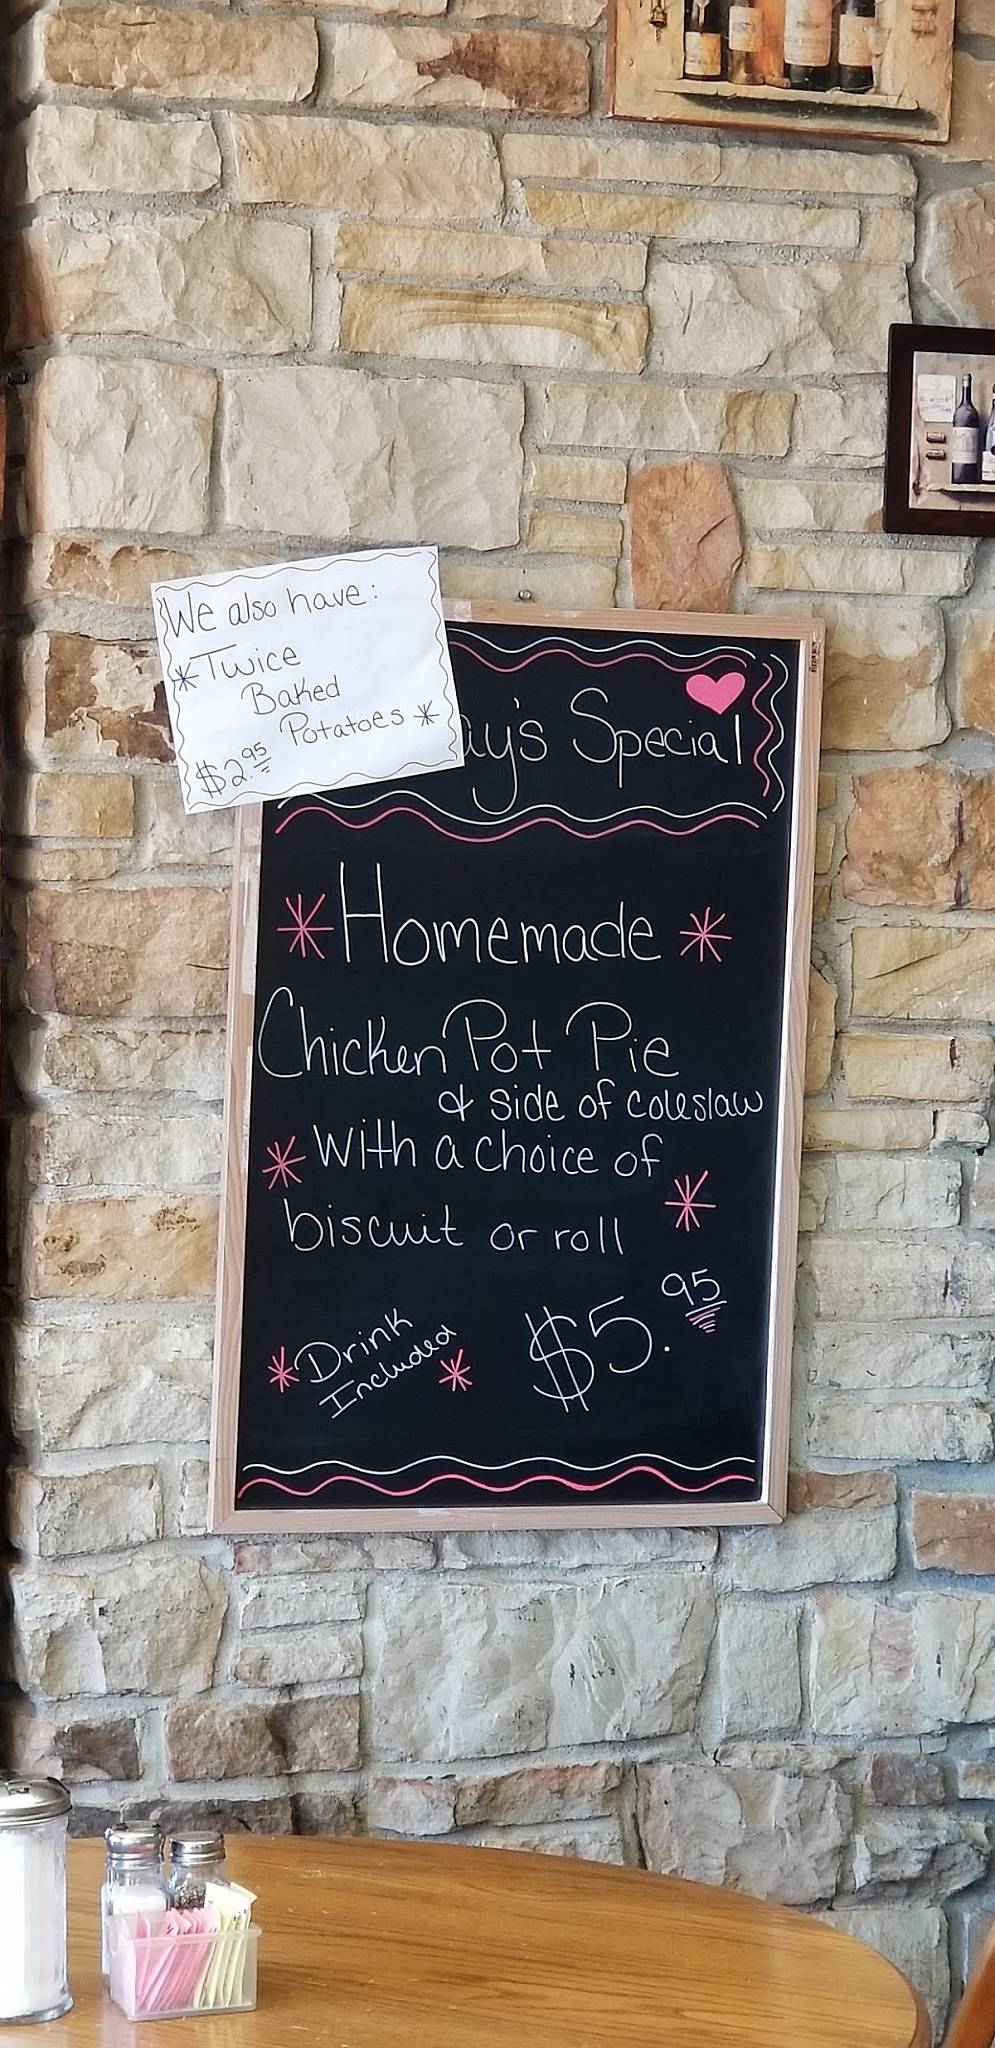 We also have:
*Twice
Baked
Potatoes*
$2.95
ay's Special
*Homemade*
Chicken Pot Pie
& side of coleslaw
*With a choice of
biscuit or roll*
*Drink
Included*
$5.95